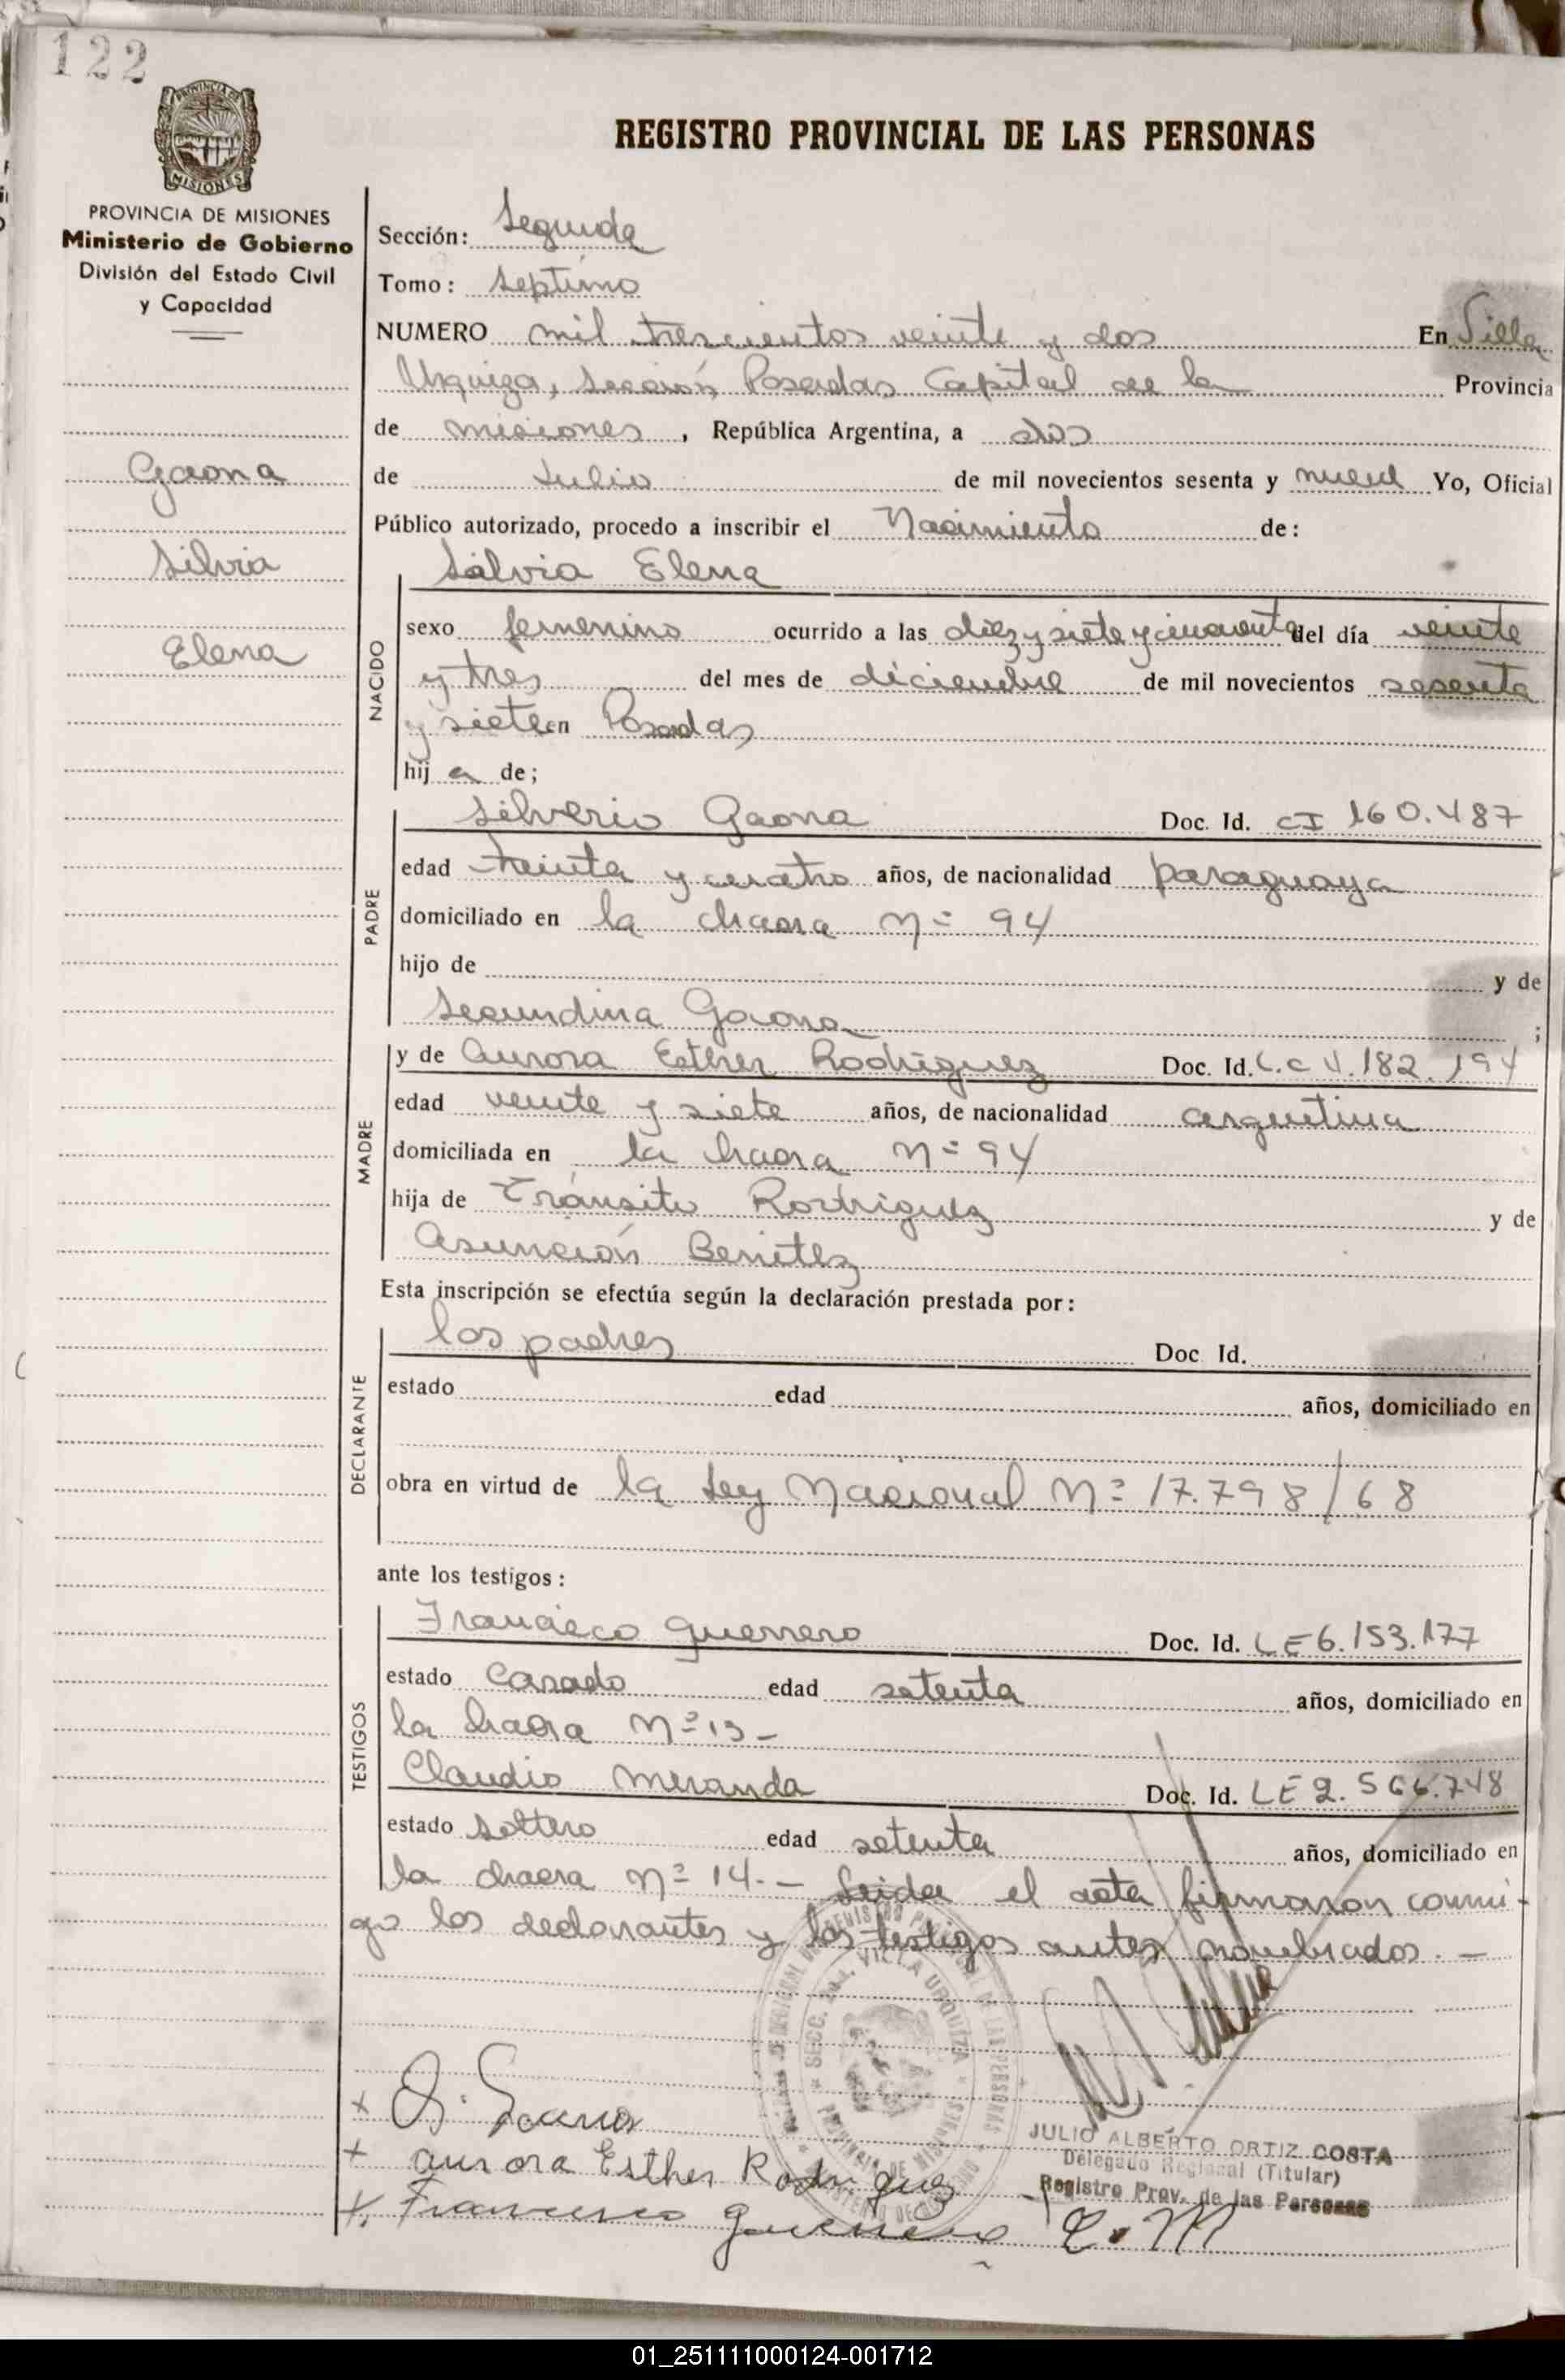 122
PROVINCIA DE
MISIONES
REGISTRO PROVINCIAL DE LAS PERSONAS
PROVINCIA DE MISIONES
Ministerio de Gobierno
División del Estado Civil
y Capacidad
Gaona
Silvia
Elena
Sección: Segunda
Tomo: septimo
NUMERO mil trescientos veinte y dos En Villa
Urquiza, sección Posadas Capital de la Provincia
de misiones, República Argentina, a dos
de Julio de mil novecientos sesenta y nueve Yo, Oficial
Público autorizado, procedo a inscribir el Nacimiento de:
NACIDO
Silvia Elena
sexo femenino ocurrido a las diez y siete y cincuenta del día veinte
y tres del mes de diciembre de mil novecientos sesenta
y siete en Posadas
hij a de;
PADRE
Silverio Gaona Doc. Id. CI 160.487
edad treinta y cuatro años, de nacionalidad paraguaya
domiciliado en la chacra nº 94
hijo de y de
Secundina Gaona ;
MADRE
y de Aurora Esther Rodriguez Doc. Id. L.C 4.182.194
edad veinte y siete años, de nacionalidad argentina
domiciliada en la chacra nº 94
hija de Tránsito Rodriguez y de
Asunción Benitez
Esta inscripción se efectúa según la declaración prestada por:
DECLARANTE
los padres Doc Id.
estado edad años, domiciliado en
obra en virtud de la Ley Nacional Nº 17.798/68
ante los testigos:
TESTIGOS
Francisco Guerrero Doc. Id. LE 6.153.177
estado Casado edad setenta años, domiciliado en
la chacra nº 13 -
Claudio Miranda Doc. Id. LE 2.566.748
estado soltero edad setenta años, domiciliado en
la chacra nº 14. - Leida el acta firmaron conmi-
go los declarantes y los testigos antes nombrados. -
SECC. VILLA URQUIZA
PROVINCIA DE MISIONES
x S. Gaona
x aurora Esther Rodriguez
x Francisco guerrero C. M
JULIO ALBERTO ORTIZ COSTA
Delegado Regional (Titular)
Registro Prov. de las Personas
01_251111000124-001712